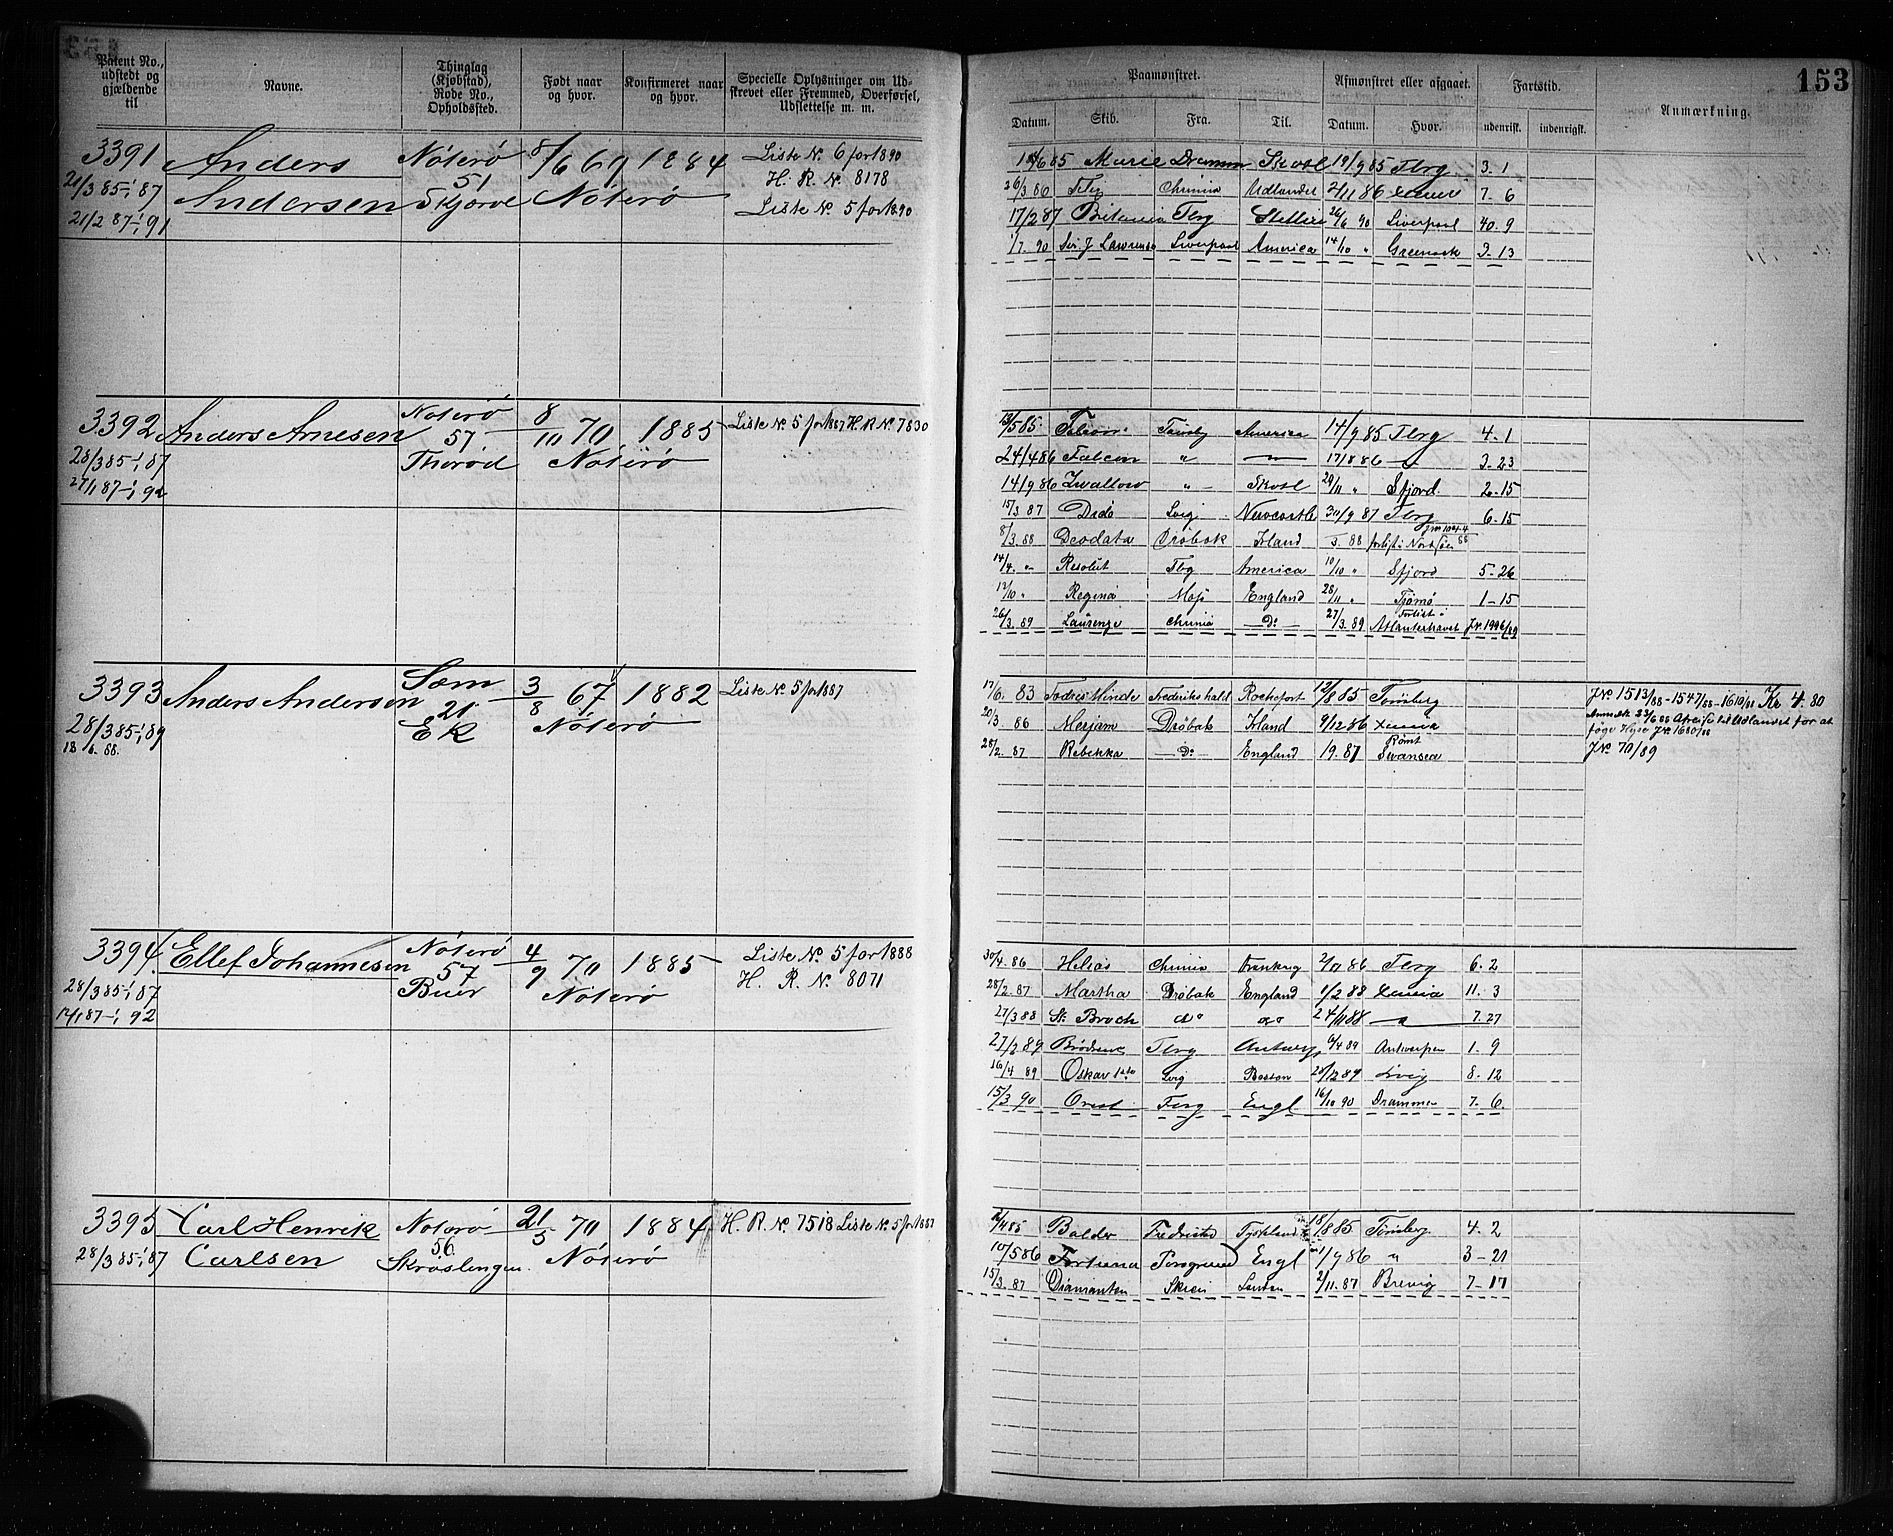 153
Patent No., udstedt og gjældende til
Navne.
Thinglag (Kjøbstad), Rode No., Opholdssted.
Født naar og hvor.
Konfirmeret naar og hvor.
Specielle Oplysninger om Udskrevet eller Fremmed, Overførsel, Udslettelse m. m.
Paamønstret.
Afmønstret eller afgaaet.
Fartstid.
Anmærkning.
Datum.
Skib.
Fra.
Til.
Datum.
Hvor.
udenrigsk.
indenrigsk.
3391 Anders Nöterö 8/6 69 1884 Liste No 6 for 1890
21/3 85-1/1 87 Andersen 51 Nöterö H. R. No 8178
21/2 87-1/1 91 Liste No 5 for 1890
Marie Dramm Skotl 19/9 85 Tbrg 3. 1
Udlandet 2/11 86 7. 6
17/2 87 Britania Tbrg 26/6 90 Liverpool 40. 9
1/7. 90 Sir. J Lawrence Liverpool America 14/10 " Greenock 3-13
3392 Anders Arnesen Nöterö 8/10 70 1885 Liste No 5 for 1887 H. R No 7830
28/3 85-1/1 87 57 Nöterö
27/1 87-1/1 92 Thoröd
13/5 85 Falcon Tönsbg America 14/9 85 Tbrg 4. 1
24/4 86 Falcon " — 17/8 86 — 3. 23
14/9 86 Swallow " Skotl 29/11 " Sfjord 2-15
15/3 87 Dido Lvig Newcastle 30/9 87 Tbrg 6-15
8/3. 88 Deodata Dröbak Irland /3. 88 forlist i Nordsöen
14/4. " Resolut Tbg America 10/10 " Sfjord 5-26
12/10 " Regina Moss England 28/11 " Tjömö 1-15
26/3. 89 Laurenze Chrnia Do 27/3. 89 Forlist i Atlanterhavet J No 1996/89
3393 Anders Andersen Sæm 3/8 67 1882 Liste No 5 for 1887
28/3 85-1/1 89 21 Nöterö
18 6. 88. Ek
17/6. 83 Fredrikshald Rochefort 12/8 85 Tönsberg J No 1513/88-1547/88-1610/88 Kr 4. 80
20/3. 86 Merjam Dröbak Irland 9/12 86 Xania
28/2. 87 Rebekka Do England 19. 87 Römt Swansea J No 70/89
3394. Ellef Johannesen Nöterö 4/9 70 1885 Liste No 5 for 1888
28/3 85-1/1 87 57 Nöterö H. R. No 8071
12/1 87-1/1 92 Buer
30/4. 86 Helios Chrnia Frankrig 2/11 86 Tbrg 6. 2
28/2. 87 Martha Dröbak England 1/2 88 Xania 11. 3
27/3 88 St. Broch do do 24/11 88 — 7. 27
27/2 89 Brödrene Tbrg Antwerp 6/4 89 Antwerpen 1. 9
16/4 89 Oskar 1ste Lvig Boston 28/12 89 Lvig 8. 12
15/3 90 Orest Tbrg Engl 16/10 90 Drammen 7. 6.
3395 Carl Henrik Nöterö 21/5 70 1884 H. R. No 7518 Liste No 5 for 1887
28/3 85-1/1 87 Carlsen 56 Nöterö
Skroslingen.
Balder Fredrikstad Tyskland 18/8 85 Tönsberg. 4. 2
10/5 86 Fortuna Porsgrund Engl 1/9 86 " 3-21
15/3. 87 Diamanten Skien London 2/11. 87 Brevig 7-17